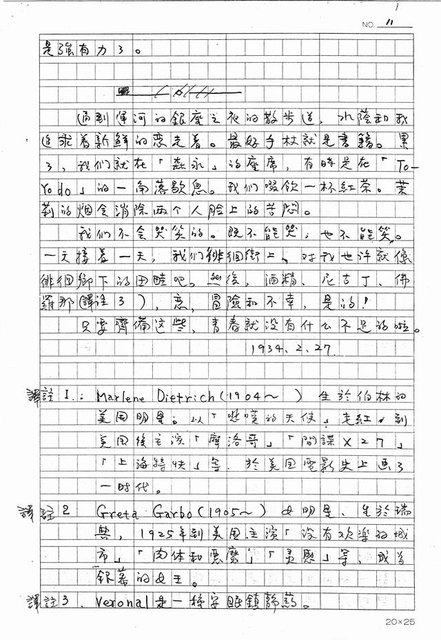 NO. 11
是強有力了。
遇到運河的銀座之夜的散步道，水蔭和我
追求着新鮮的恋走着。最好手杖就是書籍。累
了，我們就在「森永」的座席，有時是在「To-
Yodo」的一角落歇息。我們啜飲一杯紅茶。茉
莉的烟会消除两个人脸上的苦悶。
我們不会哭笑的。既不能哭，也不能笑。
一天接着一天，我們徘徊街上、对我也许就像
徘徊鄉下的田畦吧。然後，酒精、尼古丁、佛
羅那(譯注3)，恋，冒險和不幸，是的！
只要齊備这些，青春就没有什么不足的啦。
1934.2.27.
譯註1.: Marlene Dietrich(1904～ ) 生於伯林的
美国明星。以「悲嘆的天使」走紅。到
美国後主演「摩洛哥」「間諜X27」
「上海特快」等，於美国電影史上画了
一時代。
譯註2 Greta Garbo(1905～) 女明星、生於瑞
典，1925年到美国主演「没有欢樂的城
市」「肉体和惡魔」「灵慰」等，成為
銀幕的女王。
譯註3. Veronal是一種安眠鎮静葯。
20×25